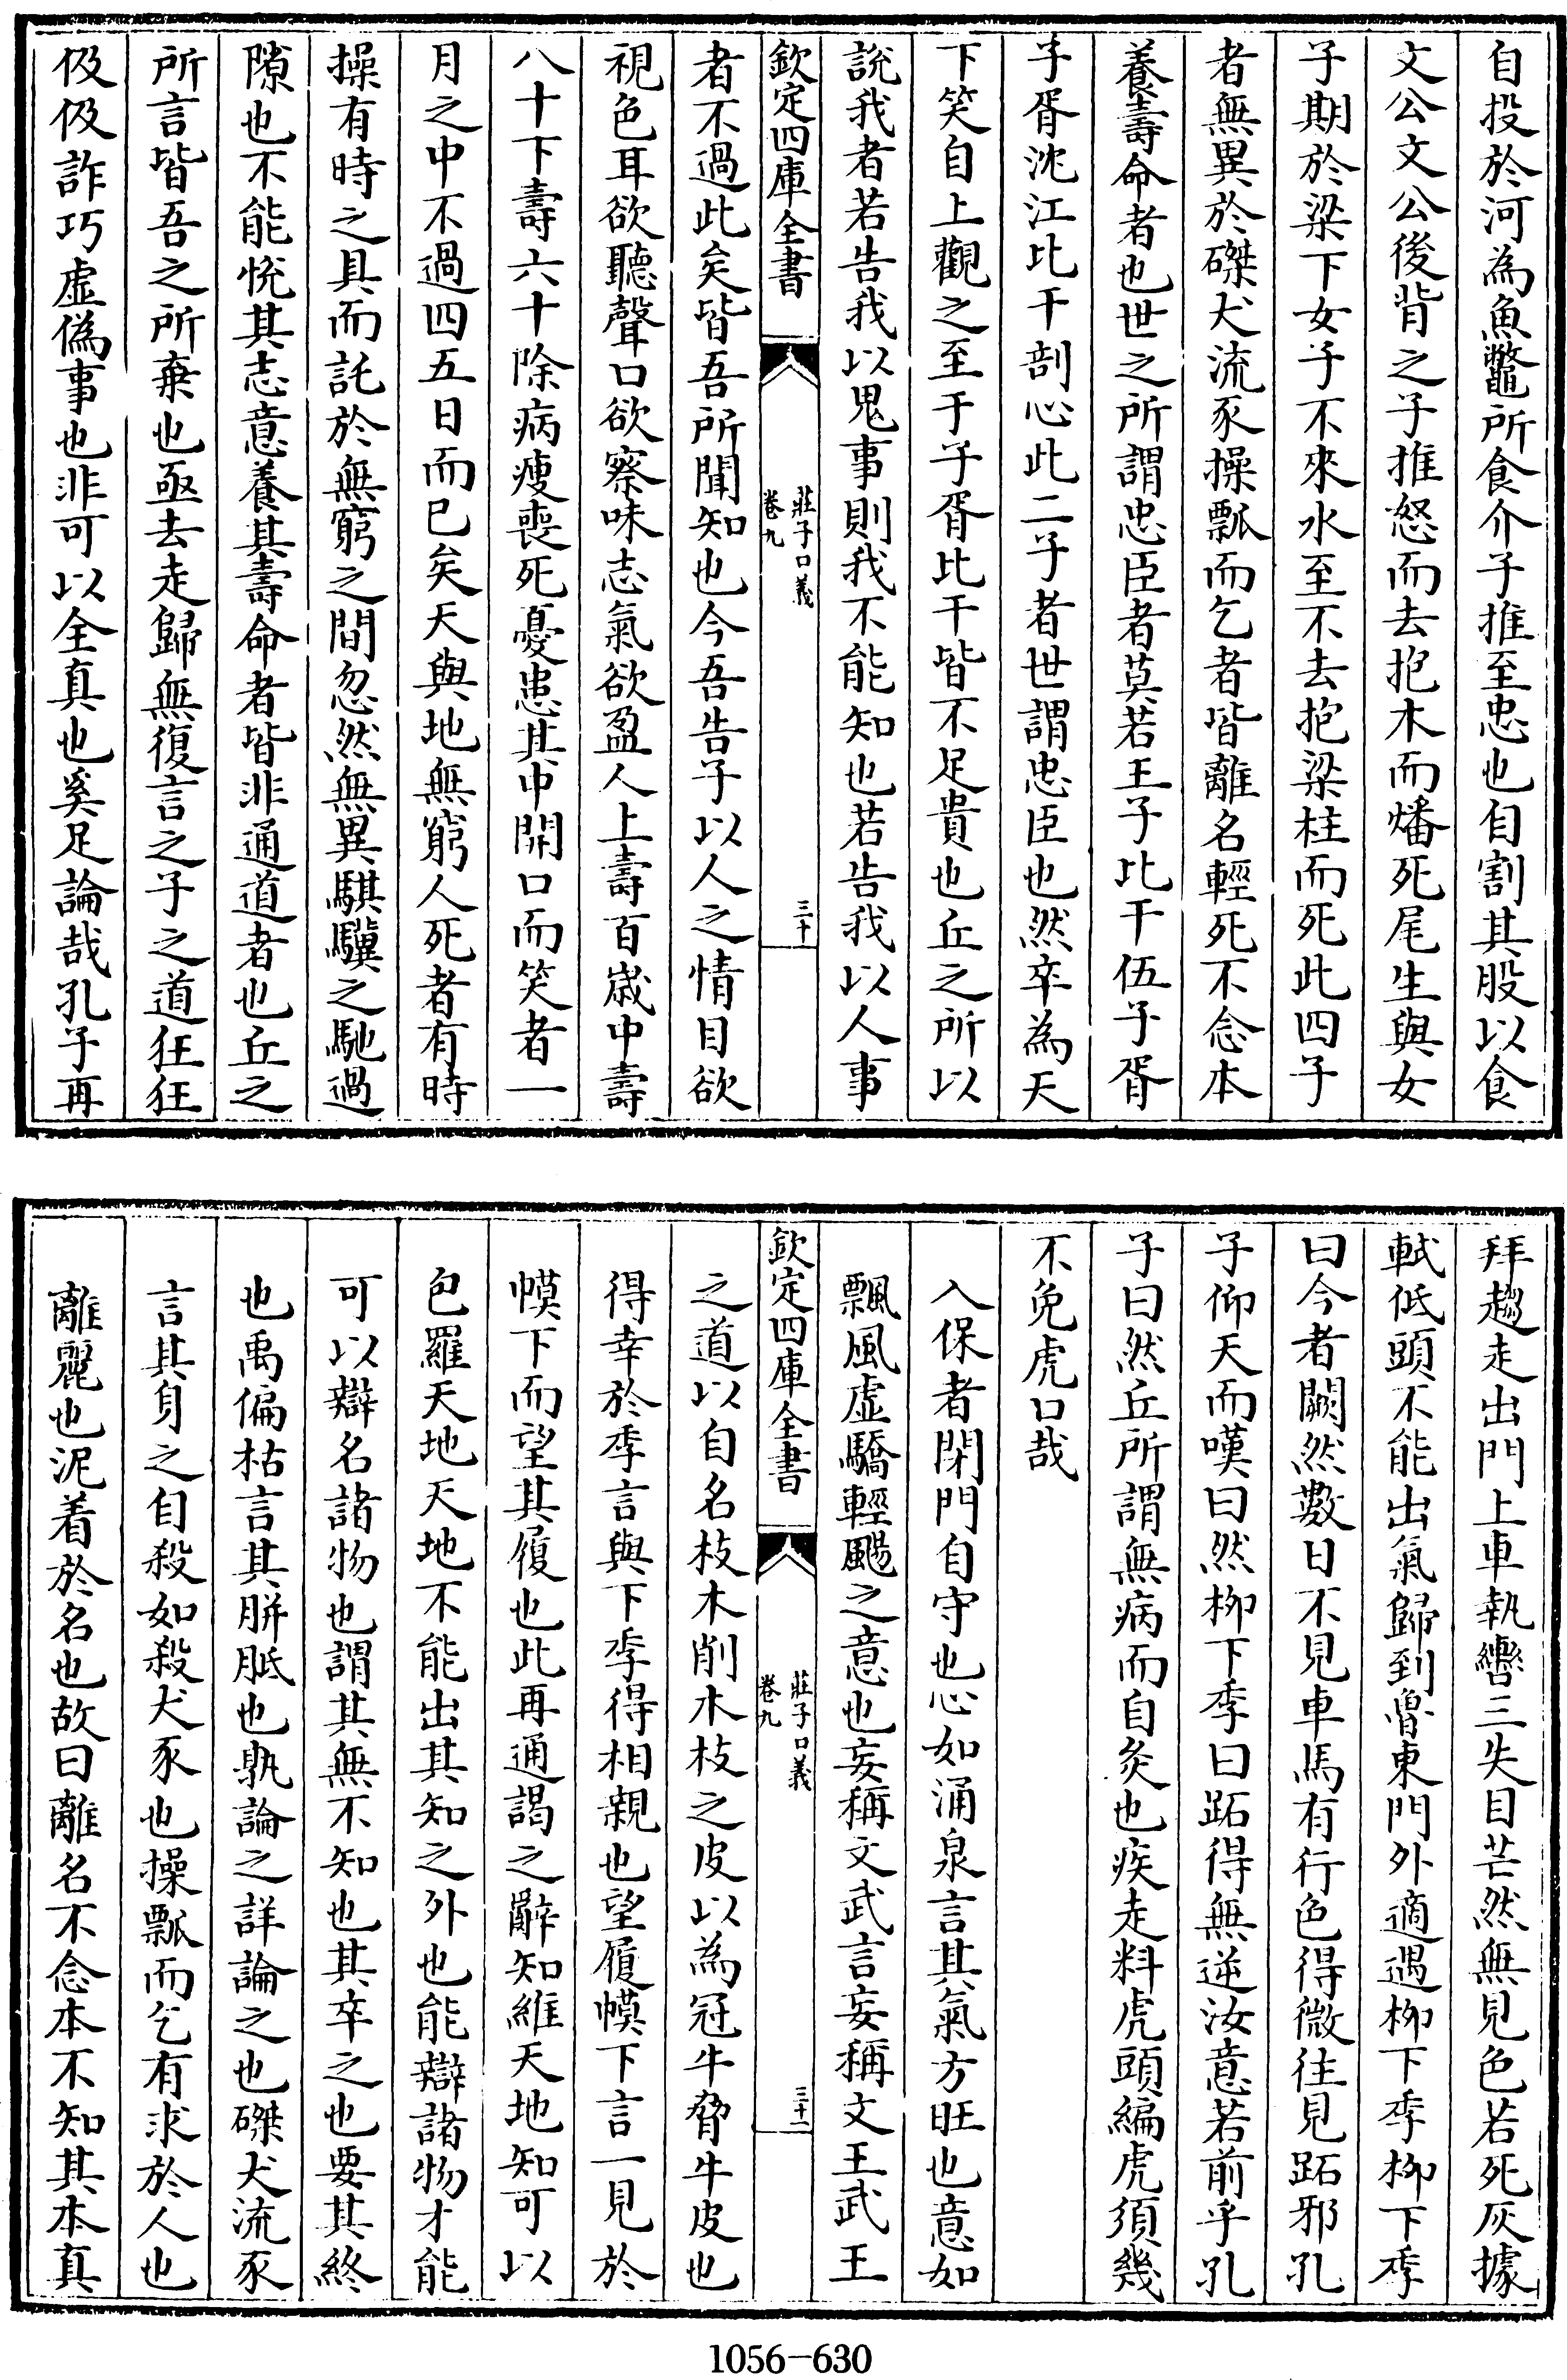 自投於河為魚鼈所食介子推至忠也自割其股以食
文公文公後背之子推怒而去抱木而燔死尾生與女
子期於梁下女子不來水至不去抱梁柱而死此四子
者無異於磔犬流豕操瓢而乞者皆離名輕死不念本
養壽命者也世之所謂忠臣者莫若王子比干伍子胥
子胥沈江比干剖心此二子者世謂忠臣也然卒為天
下笑自上觀之至于子胥比干皆不足貴也丘之所以
說我者若告我以鬼事則我不能知也若告我以人事
欽定四庫全書
莊子口義
卷九
三十
者不過此矣皆吾所聞知也今吾告子以人之情目欲
視色耳欲聽聲口欲察味志氣欲盈人上壽百歲中壽
八十下壽六十除病瘦喪死憂患其中開口而笑者一
月之中不過四五日而已矣天與地無窮人死者有時
操有時之具而託於無窮之間忽然無異騏驥之馳過
隙也不能悅其志意養其壽命者皆非通道者也丘之
所言皆吾之所棄也亟去走歸無復言之子之道狂狂
伋伋詐巧虛偽事也非可以全真也奚足論哉孔子再
拜趨走出門上車執轡三失目芒然無見色若死灰據
軾低頭不能出氣歸到魯東門外適遇柳下季柳下季
曰今者闕然數日不見車馬有行色得微往見跖邪孔
子仰天而嘆曰然柳下季曰跖得無逆汝意若前乎孔
子曰然丘所謂無病而自灸也疾走料虎頭編虎須幾
不免虎口哉
入保者閉門自守也心如涌泉言其氣方旺也意如
飄風虛驕輕颺之意也妄稱文武言妄稱文王武王
欽定四庫全書
莊子口義
卷九
三十一
之道以自名枝木削木枝之皮以為冠牛脅牛皮也
得幸於季言與下季得相親也望履幙下言一見於
幙下而望其履也此再通謁之辭知維天地知可以
包羅天地天地不能出其知之外也能辯諸物才能
可以辯名諸物也謂其無不知也其卒之也要其終
也禹偏枯言其胼胝也孰論之詳論之也磔犬流豕
言其身之自殺如殺犬豕也操瓢而乞有求於人也
離麗也泥着於名也故曰離名不念本不知其本真
1056-630